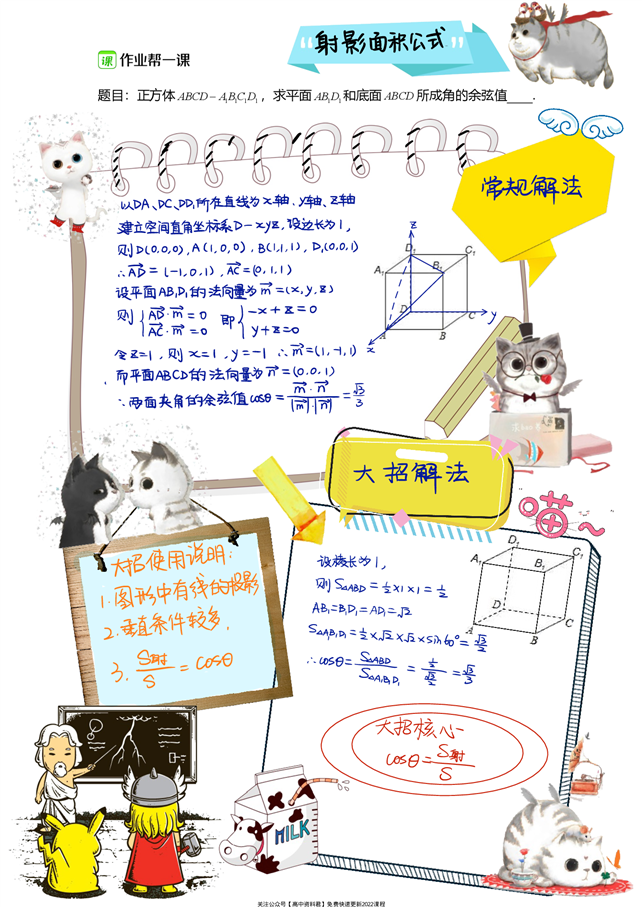 “射影面积公式”
课 作业帮一课
题目：正方体 ABCD－A₁B₁C₁D₁，求平面 AB₁D₁和底面 ABCD 所成角的余弦值____.
常规解法
以DA、DC、DD₁所在直线为x轴、y轴、z轴
建立空间直角坐标系D－xyz，设边长为1，
则D(0,0,0)，A(1,0,0)，B(1,1,1)，D₁(0,0,1)
∴AD⃗ = (-1,0,1)，AC⃗ = (0,1,1)
设平面AB₁D₁的法向量为m⃗ = (x,y,z)
则 { AD⃗·m⃗ = 0 即 { -x+z=0
AC⃗·m⃗ = 0 y+z=0
令z=1，则x=1，y=-1 ∴m⃗=(1,-1,1)
而平面ABCD的法向量为n⃗=(0,0,1)
∴两面夹角的余弦值cosθ = m⃗·n⃗ / |m⃗|·|n⃗| = √3/3
z
D₁ C₁
A₁ B₁
D C y
A B
x
大招解法
喵~
大招使用说明：
1.图形中有线的投影
2.垂直条件较多.
3. S射/S = cosθ
设棱长为1，
则 S△ABD = ½×1×1 = ½
AB₁=B₁D₁=AD₁=√2
S△AB₁D₁ = ½×√2×√2×sin60° = √3/2
∴cosθ = S△ABD / S△A₁B₁D₁ = ½ / (√3/2) = √3/3
D₁ C₁
A₁ B₁
D C
A B
大招核心
cosθ = S射/S
MILK
关注公众号【高中资料君】免费快速更新2022课程